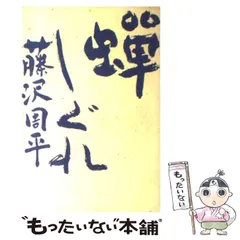 蟬しぐれ
藤沢周平
もったいない
"もったいない"本舗